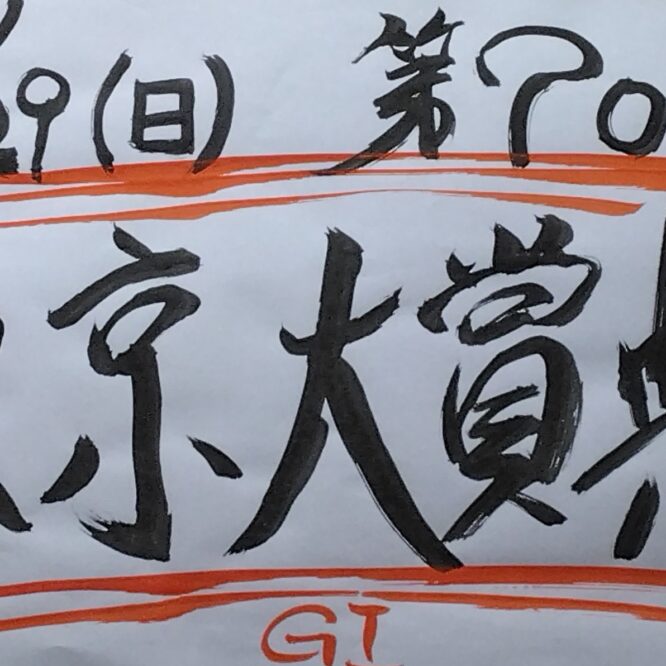 29(日) 第70
京大賞典
GI